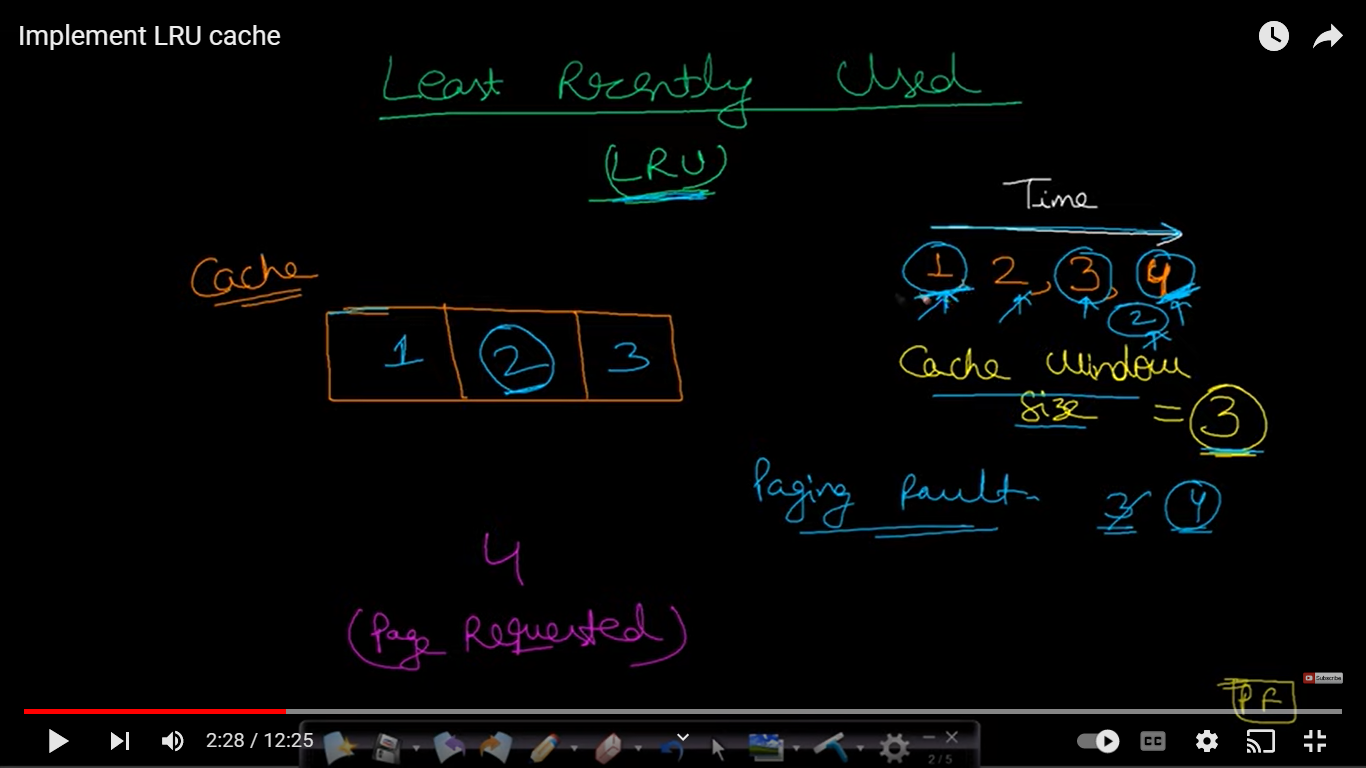 Implement LRU cache
Least Recently Used
(LRU)
Time
1 2, 3, 4
2
Cache
1 2 3
Cache Window
Size = 3
Paging Fault- 3 4
4
(Page Requested)
Subscribe
PF
2:28 / 12:25
CC
2 / 5